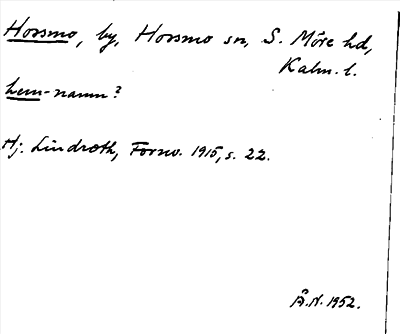 Horsmo, by, Horsmo sn, S. Möre hd,
Kalm. l.
hem-namn?
Hj. Lindroth, Fornv. 1915, s. 22.
Å.N. 1952.